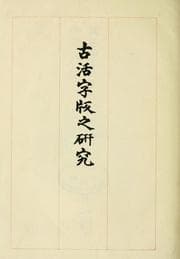 古活字版之研究